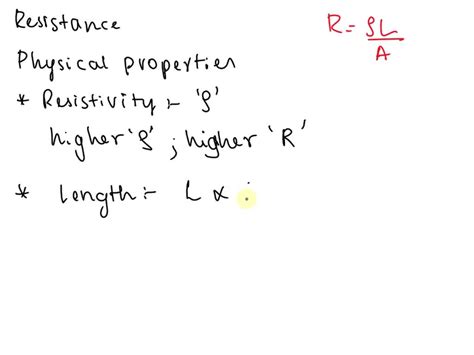 Resistance
R = ρL/A
Physical properties
* Resistivity :- 'ρ'
higher 'ρ' ; higher 'R'
* length :- L ∝